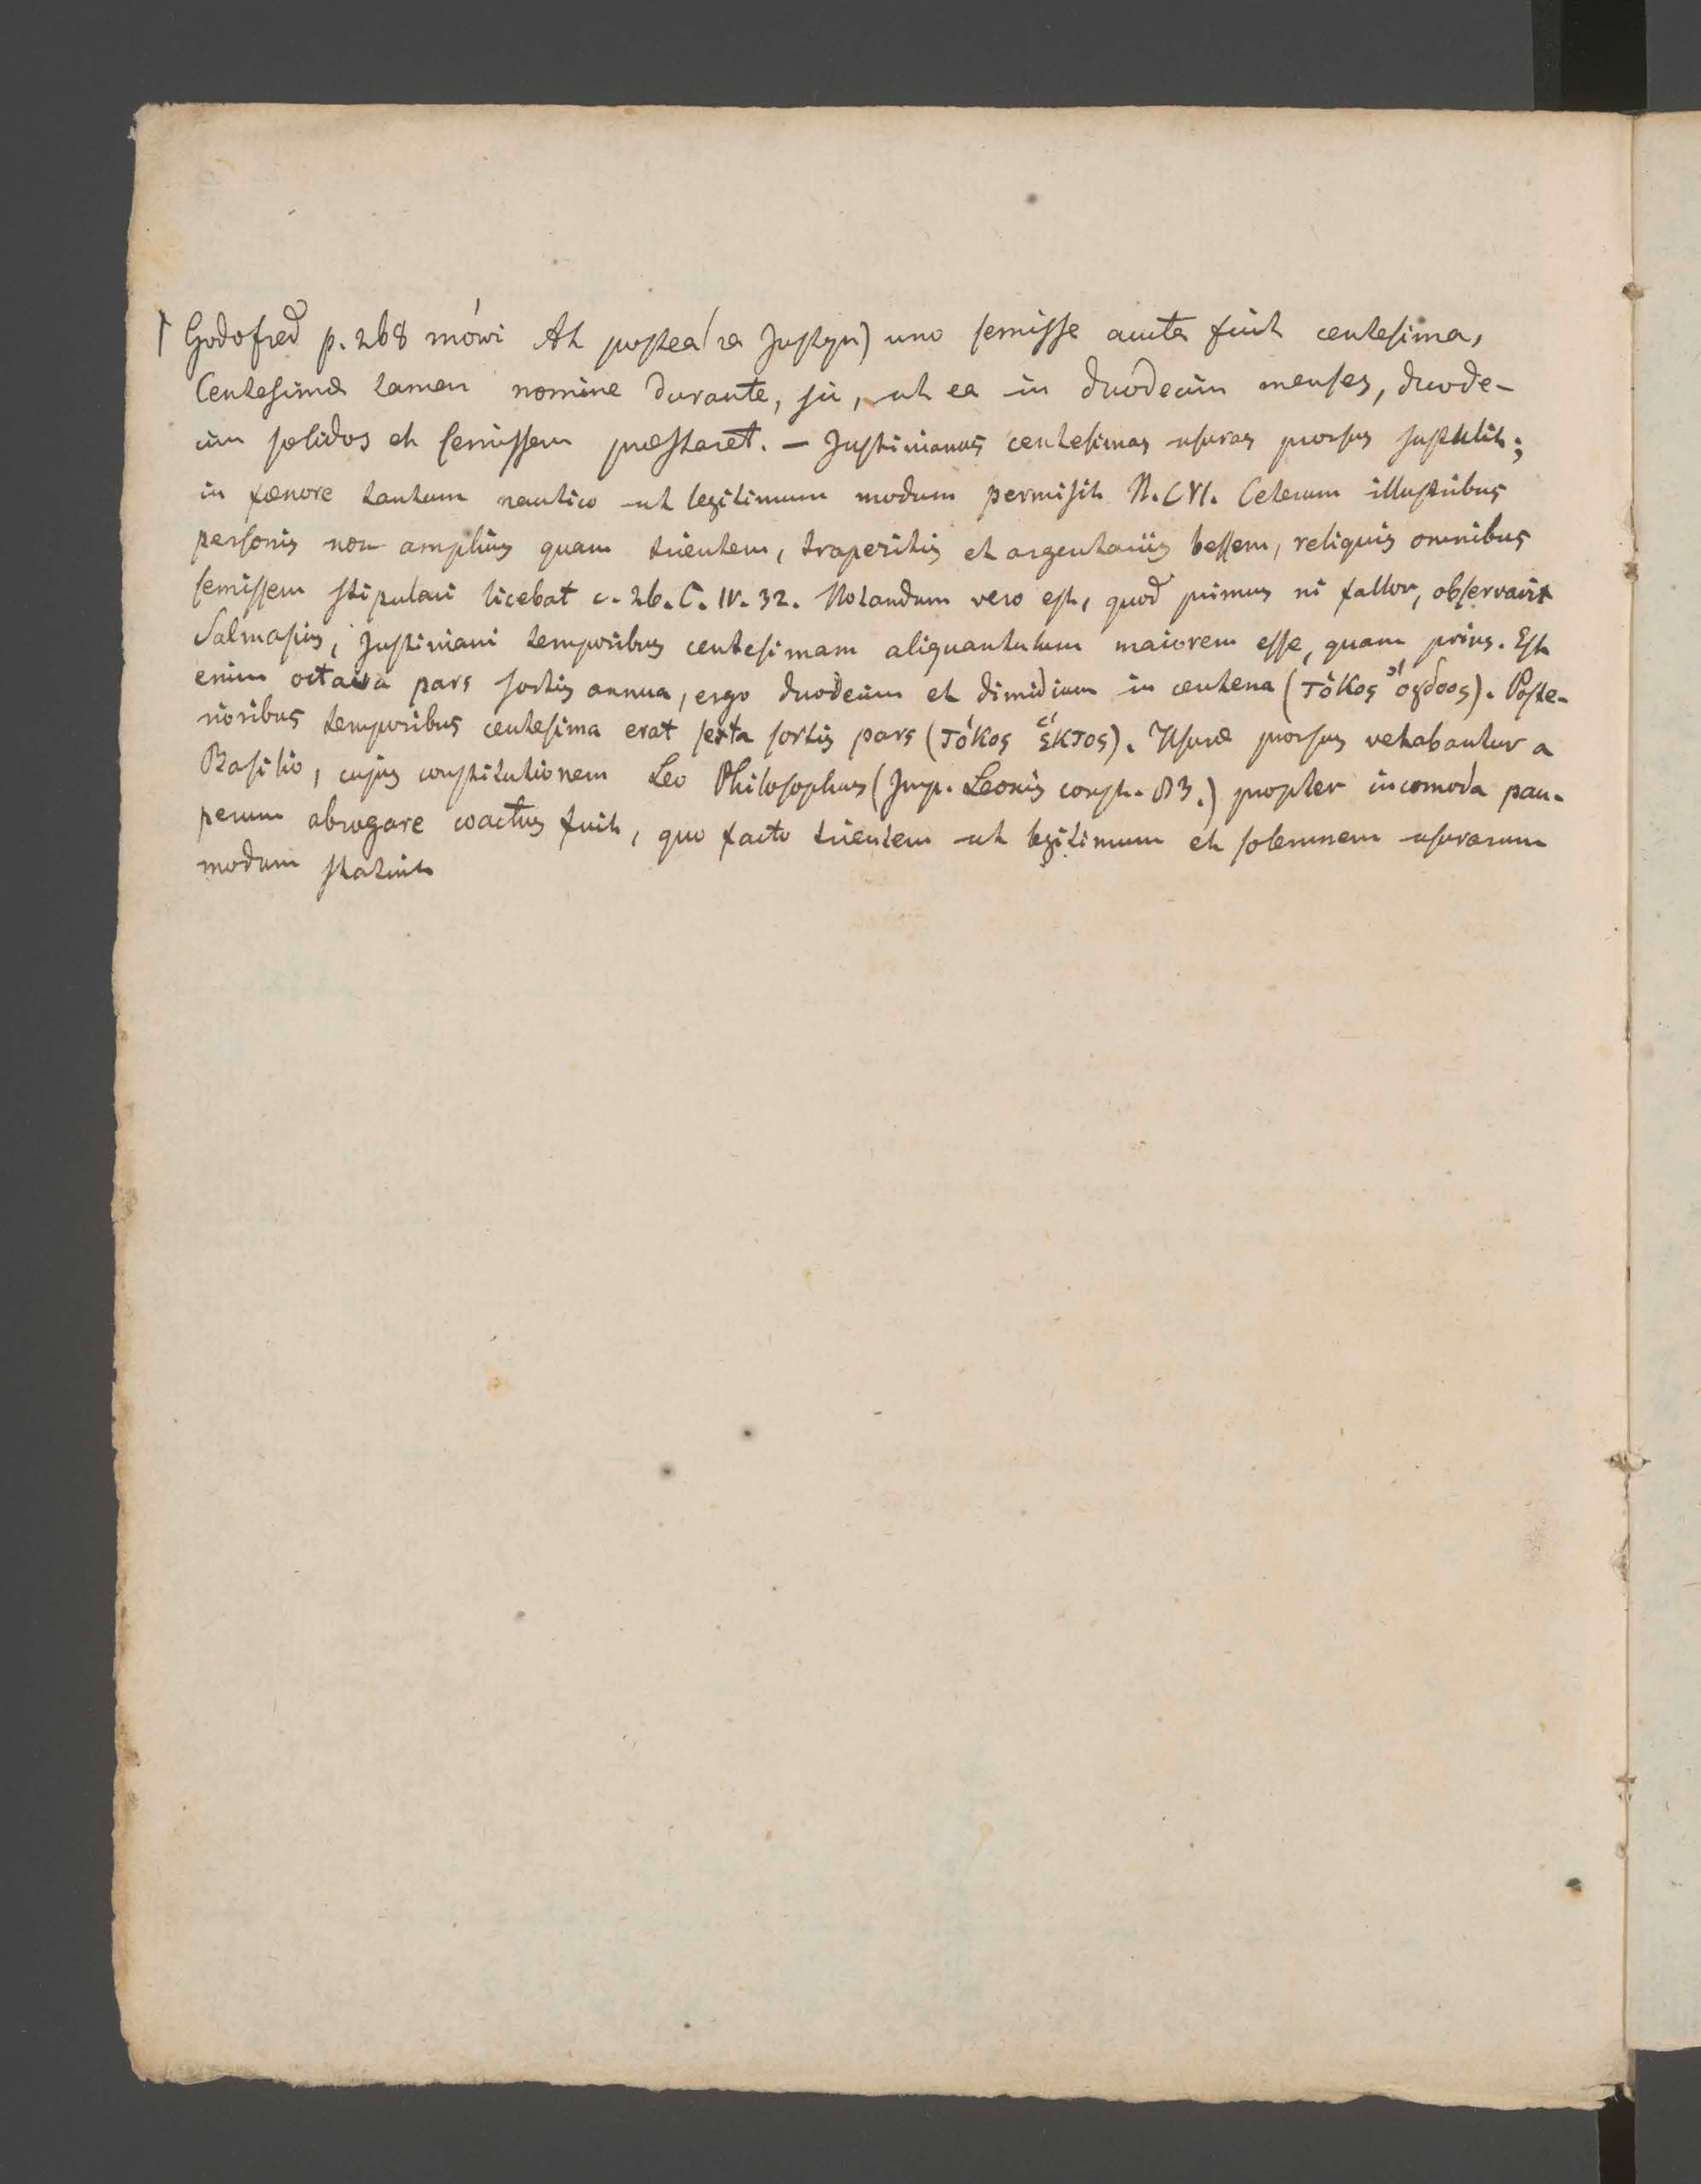 Godofred p. 268 mówi At postea (za Justyn) uno semisse aucta fuit centesima,
Centesimæ tamen nomine durante, sic, ut ea in duodecim menses, duode-
cim solidos et semissem præstaret. — Justinianus centesimas usuras prorsus sustulit;
in fœnore tantum nautico ut legitimum modum permisit N. CVI. Ceterum illustribus
personis non amplius quam trientem, trapezitis et argentariis bessem, reliquis omnibus
semissem stipulari licebat c. 26. C. IV. 32. Notandum vero est, quod primus ni fallor, observavit
Salmasius, Justiniani temporibus centesimam aliquantulum maiorem esse, quam prius. Est
enim octava pars sortis annua, ergo duodecim et dimidium in centena (τόκος ὄγδοος). Poste-
rioribus temporibus centesima erat sexta sortis pars (τόκος ἕκτος). Usuræ prorsus vetabantur a
Basilio, cujus constitutionem Leo Philosophus (Imp. Leonis const. 83.) propter incomoda pau-
perum abrogare coactus fuit, quo facto trientem ut legitimum et solemnem usurarum
modum statuit